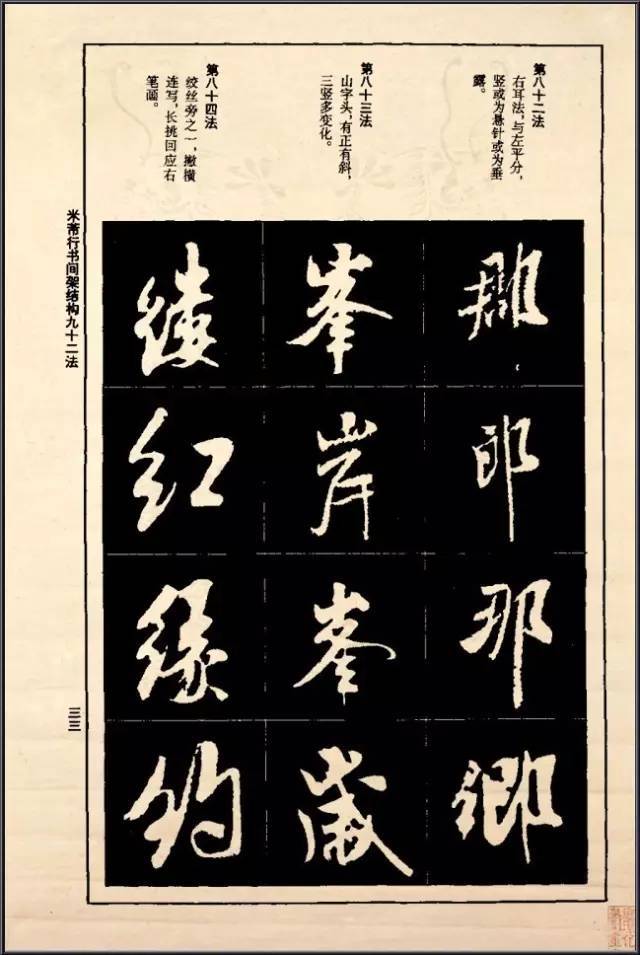 第八十二法
右耳法，与左平分，
竖或为悬针或为垂
露。
郎
那
卿
第八十三法
山字头，有正有斜，
三竖多变化。
峯
岸
歲
第八十四法
绞丝旁之一，撇横
连写，长挑回应右
笔画。
红
缘
约
米芾行书间架结构九十二法
三三